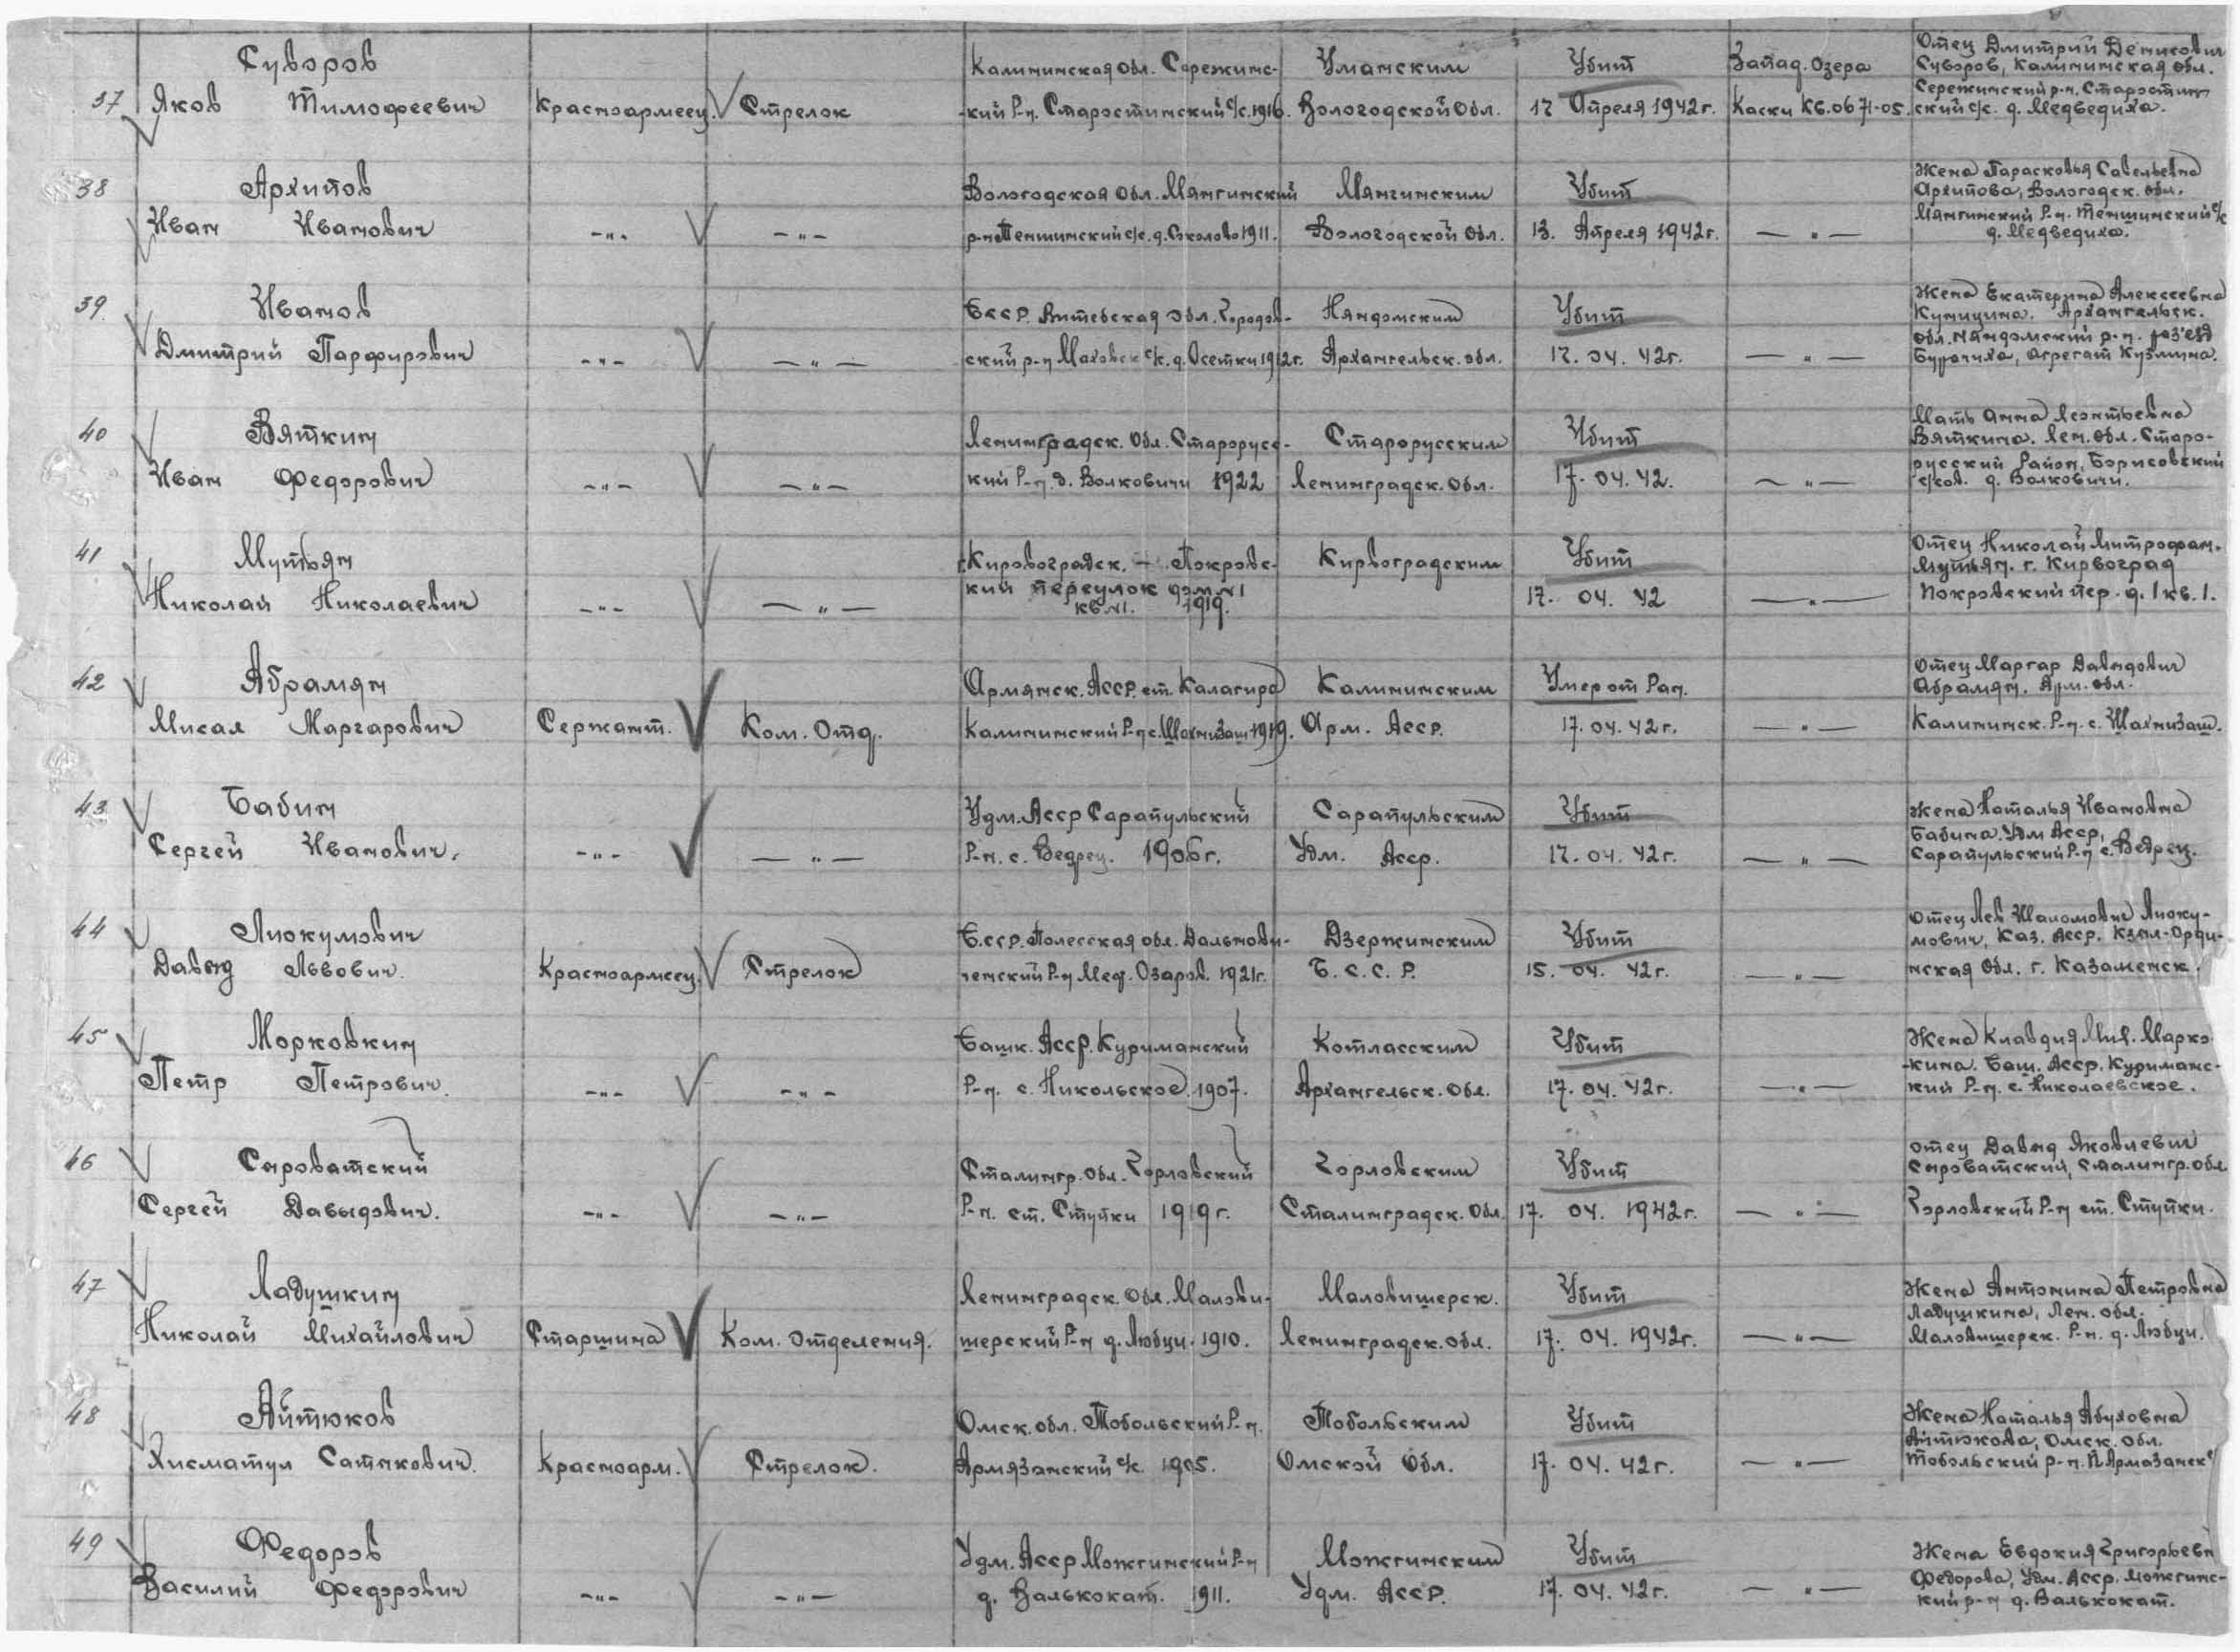 Суворов
37 Яков Тимофеевич Красноармеец. Стрелок
Калининская Обл. Сережинс-
-кий Р-н. Старостинский с/с. 1916.
Уманским
Вологодской Обл.
Убит
17 Апреля 1942г.
Запад. Озера
Каски Кв. 0671-05.
Отец Дмитрий Денисович
Суворов, Калининская обл.
Сережинский р-н. Старостин
ский с/с. д. Медведиха.
38 Архипов
Иван Иванович -"- -"-
Вологодская Обл. Мянгинский
р-н Теншинский с/с. д. Соколово 1911.
Мянгинским
Вологодской Обл.
Убит
13. Апреля 1942г.
-"-
Жена Парасковья Савельевна
Архипова, Вологодск. обл.
Мянгинский Р-н. Теншинский с/с
д. Медведиха.
39. Иванов
Дмитрий Парфирович -"- -"-
БССР. Витебская обл. Городов-
ский р-н Маховск с/с. д. Осетки 1912г.
Няндомским
Архангельск. обл.
Убит
17. 04. 42г.
-"-
Жена Екатерина Алексеевна
Куницина. Архангельск.
обл. Няндомский р-н. раз'езд
Бурачиха, Агрегат Кузмина.
40 Вяткин
Иван Федорович -"- -"-
Ленинградск. Обл. Старорусс-
кий Р-н. д. Волковичи 1922
Старорусским
Ленинградск. Обл.
Убит
17. 04. 42.
-"-
Мать Анна Леонтьевна
Вяткина. Лен. Обл. Старо-
русский Район, Борисовский
с/сов. д. Волковичи.
41 Мутьян
Николай Николаевич -"- -"-
г. Кировоградск. - Покровс-
кий переулок дом №1
кв. №1. 1919.
Кирвоградским
Убит
17. 04. 42
-"-
Отец Николай Митрофан.
Мутьян. г. Кирвоград
Покровский пер. д. 1 кв. 1.
42 Абрамян
Мисал Маргарович Сержант. Ком. Отд.
Армянск. АССР. ст. Калагира
Калининский Р-н с. Шахнизаш 1919.
Калининским
Арм. АССР.
Умер от Ран.
17. 04. 42г.
-"-
Отец Маргар Давыдович
Абрамян. Арм. обл.
Калининск. Р-н. с. Шахнизаш.
43 Бабин
Сергей Иванович. -"- -"-
Удм. АССР Сарапульский
Р-н. с. Ведрец. 1906г.
Сарапульским
Удм. АССР.
Убит
17. 04. 42г.
-"-
Жена Наталья Ивановна
Бабина. Удм АССР,
Сарапульский Р-н с. Ведрец.
44 Лиокумович
Давыд Львович. Красноармеец. Стрелок
Б.ССР. Полесская обл. Дальнови-
ченский Р-н Мед. Озаров. 1921г.
Дзержинским
Б. С. С. Р.
Убит
15. 04. 42г.
-"-
Отец Лев Шаломович Лиоку-
мович, Каз. АССР. Кзыл-Орди-
нская Обл. г. Казаленск.
45 Морковкин
Петр Петрович. -"- -"-
Башк. АССР. Куриманский
Р-н. с. Никольское. 1907.
Котласским
Архангельск. Обл.
Убит
17. 04. 42г.
-"-
Жена Клавдия Мих. Марко-
-кина. Баш. АССР. Куриманс-
кий Р-н. с. Николаевское.
46 Сыроватский
Сергей Давыдович. -"- -"-
Сталингр. Обл. Горловский
Р-н. ст. Ступки 1919г.
Горловским
Сталинградск. Обл.
Убит
17. 04. 1942г.
-"-
Отец Давыд Яковлевич
Сыроватский, Сталингр. Обл.
Горловский Р-н ст. Ступки.
47 Ладушкин
Николай Михайлович Старшина Ком. Отделения.
Ленинградск. Обл. Малови-
шерский Р-н д. Любци. 1910.
Маловишерск.
Ленинградск. обл.
Убит
17. 04. 1942г.
-"-
Жена Антонина Петровна
Ладушкина, Лен. обл.
Маловишерск. Р-н. д. Любци.
48 Айтюков
Хисматул Сатыкович. Красноарм. Стрелок.
Омск. обл. Тобольский Р-н.
Армязанский с/с. 1905.
Тобольским
Омской Обл.
Убит
17. 04. 42г.
-"-
Жена Наталья Абуховна
Айтюкова, Омск. обл.
Тобольский р-н. П. Армазанск с/
49 Федоров
Василий Федорович -"- -"-
Удм. АССР Можгинский Р-н
д. Валькокат. 1911.
Можгинским
Удм. АССР.
Убит
17. 04. 42г.
-"-
Жена Евдокия Григорьевн
Федорова, Удм. АССР. Можгинс-
кий р-н д. Валькокат.